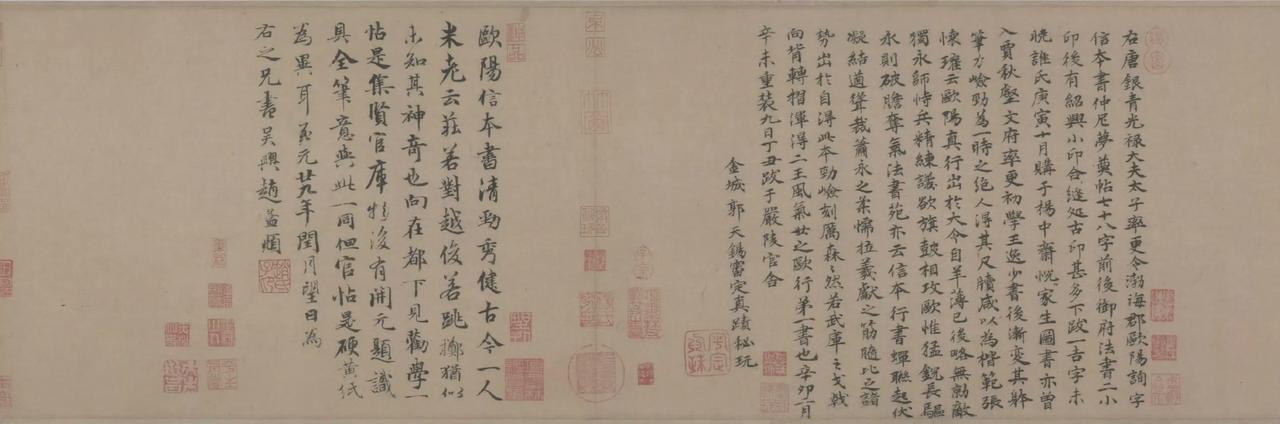 右唐銀青光禄大夫太子率更令渤海郡歐陽詢字
信本書仲尼夢奠帖七十八字前後御府法書二小
印後有紹興小印合縫处古印甚多下政一古字未
曉誰氏庚寅十月購于楊中齋悦家生圖書亦曾
入賈秋壑文府率更初學王逸少書後漸變其躰
筆力嶮勁為一時之絶人得其尺牘咸以為楷範張
懷瓘云歐陽真行出於大令自羊薄已後略無勍敵
獨永師恃兵精練議欲旗鼓相攻歐惟猛銳長驅
永則破膽奪氣法書苑亦云信本行書蟬聯起伏
凝結遒聳裁蕭永之柔懦拉羲獻之筋髓比之諸
勢出於自得此本勁嶮刻厲森森然若武庫之戈戟
向背轉摺渾得二王風氣世之歐行第一書也辛卯二月
辛未重装九日丁丑跋于嚴陵官舎
金城郭天錫審定真蹟秘玩
歐陽信本書清勁秀健古今一人
米老云莊若對越俊若跳擲猶似
未知其神奇也向在都下見勸學一
帖是集賢官庫物後有開元題識
具全筆意與此一同但官帖是硬黄紙
為異耳至元廿九年閏月望日為
右之兄書吳興趙孟頫